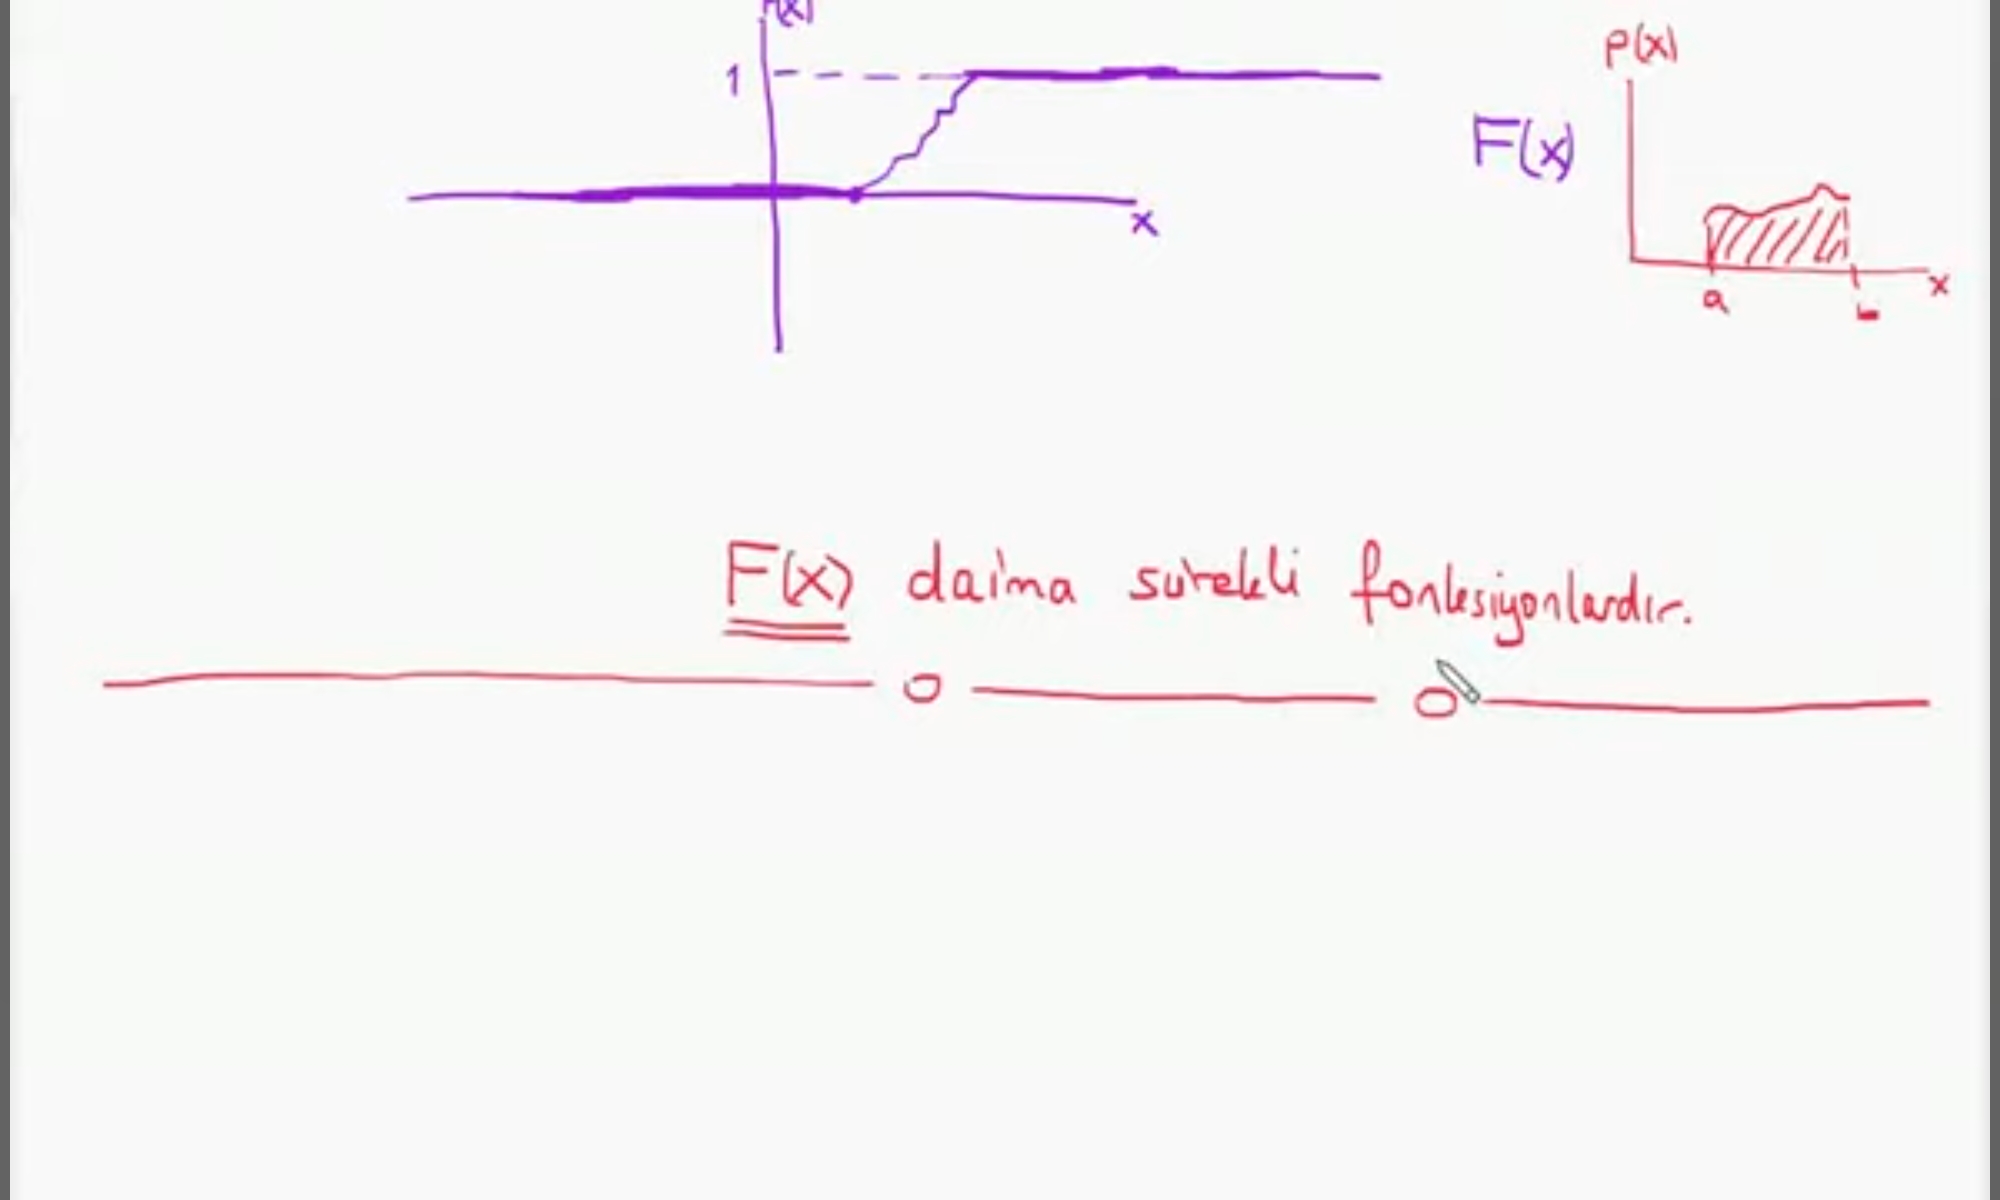 F(x)
1
x
F(x)
p(x)
a
b
x
F(x) daima sürekli fonksiyonlardır.